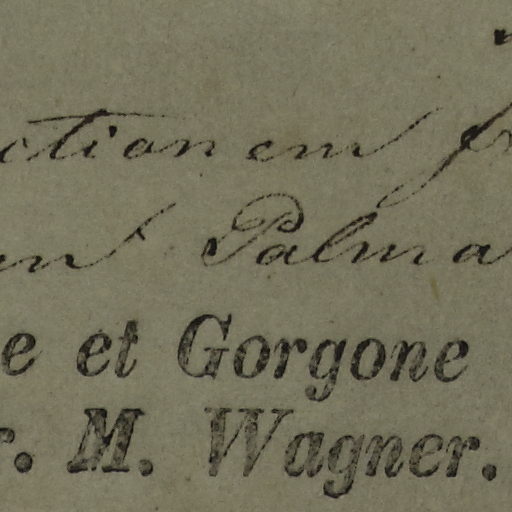 ctionem fr
en Palma
e et Gorgone
r. M. Wagner.